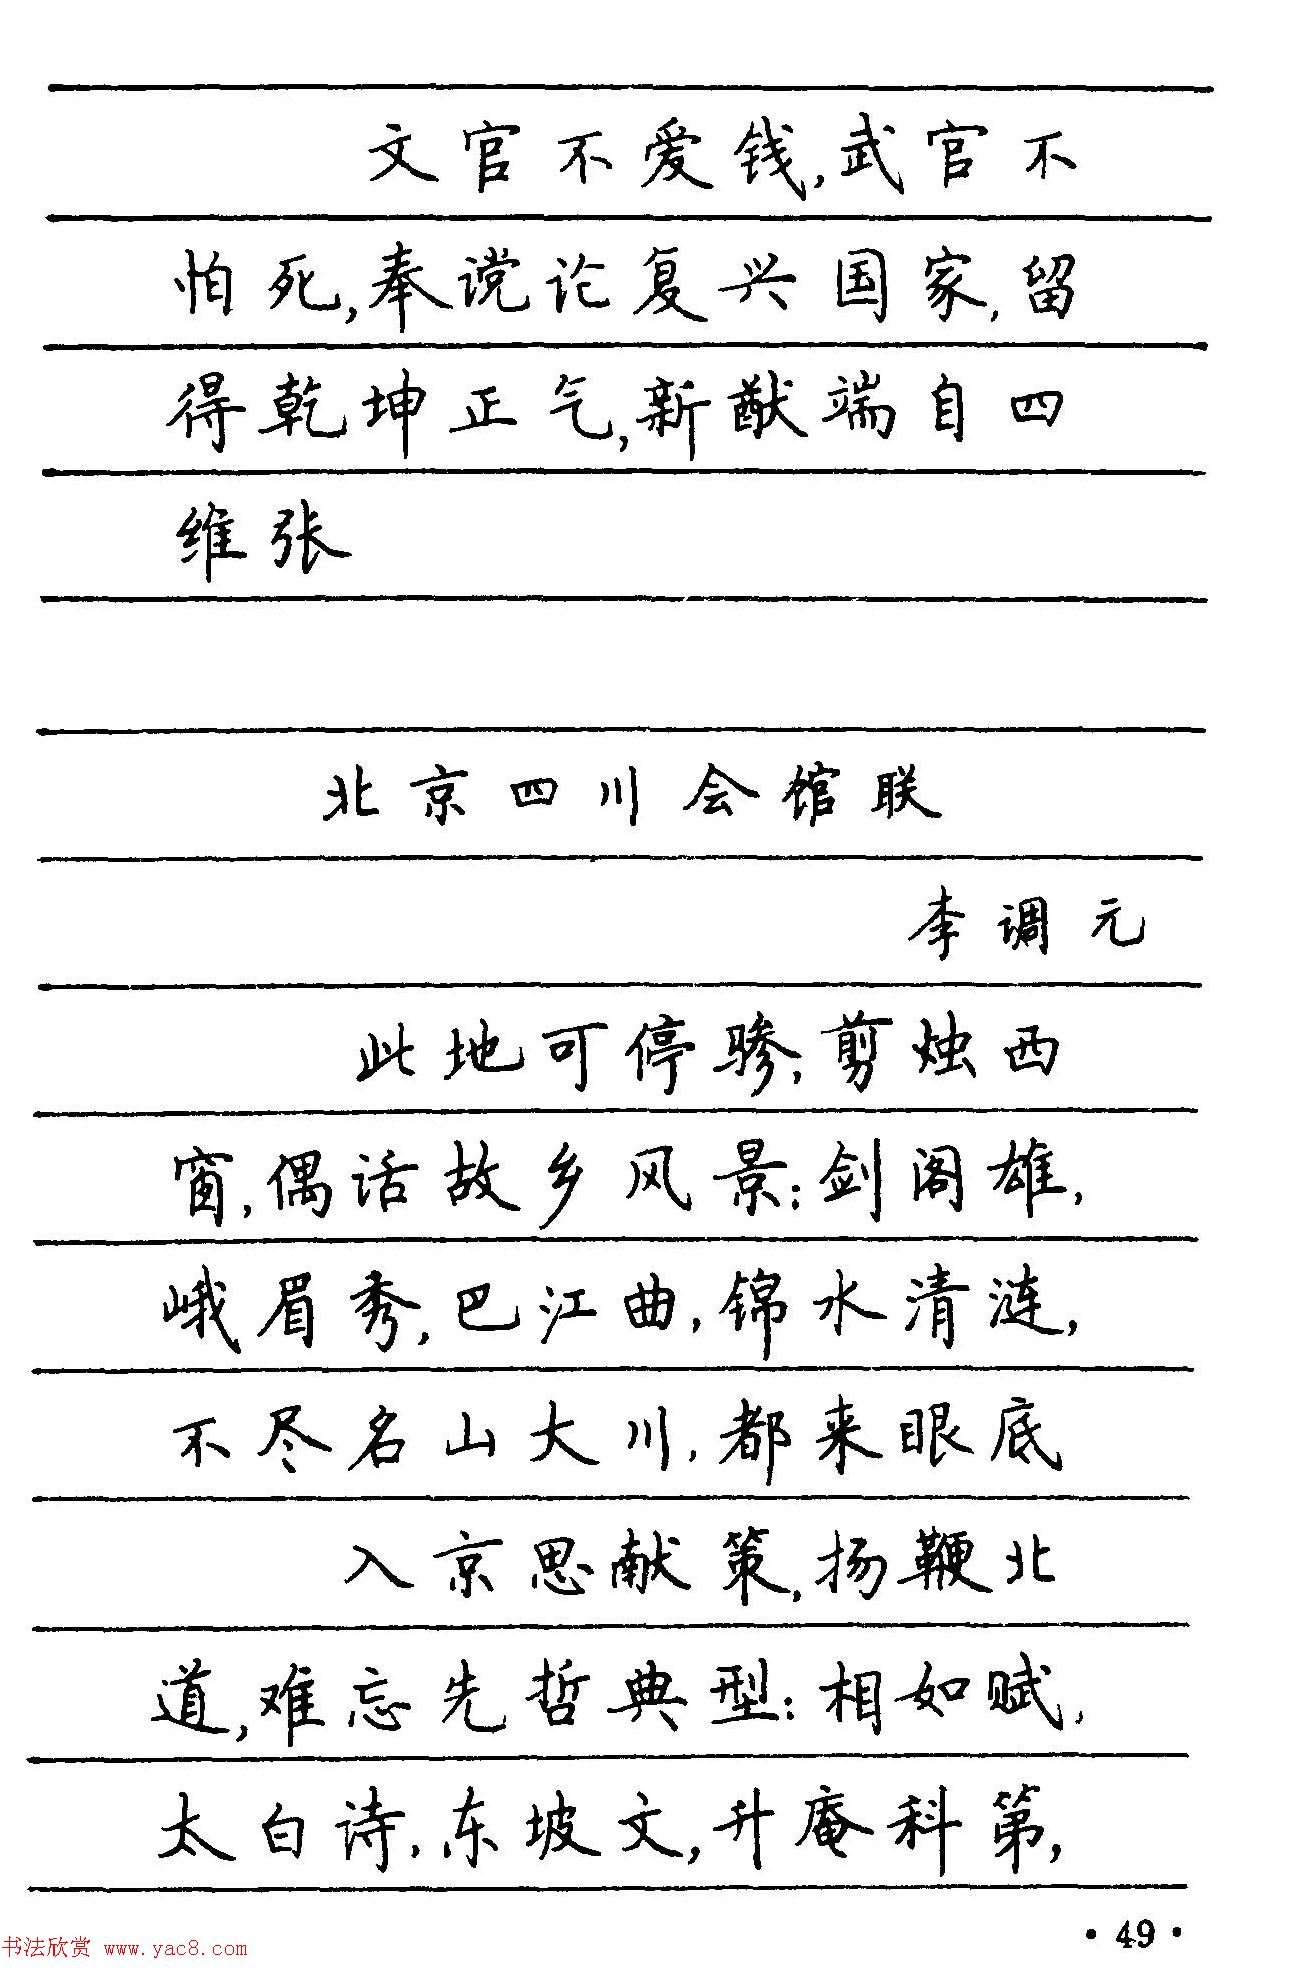 文官不爱钱,武官不
怕死,奉谠论复兴国家,留
得乾坤正气,新猷端自四
维张
北京四川会馆联
李调元
此地可停骖,剪烛西
窗,偶话故乡风景:剑阁雄,
峨眉秀,巴江曲,锦水清涟,
不尽名山大川,都来眼底
入京思献策,扬鞭北
道,难忘先哲典型:相如赋,
太白诗,东坡文,升庵科第,
·49·
书法欣赏 www.yac8.com